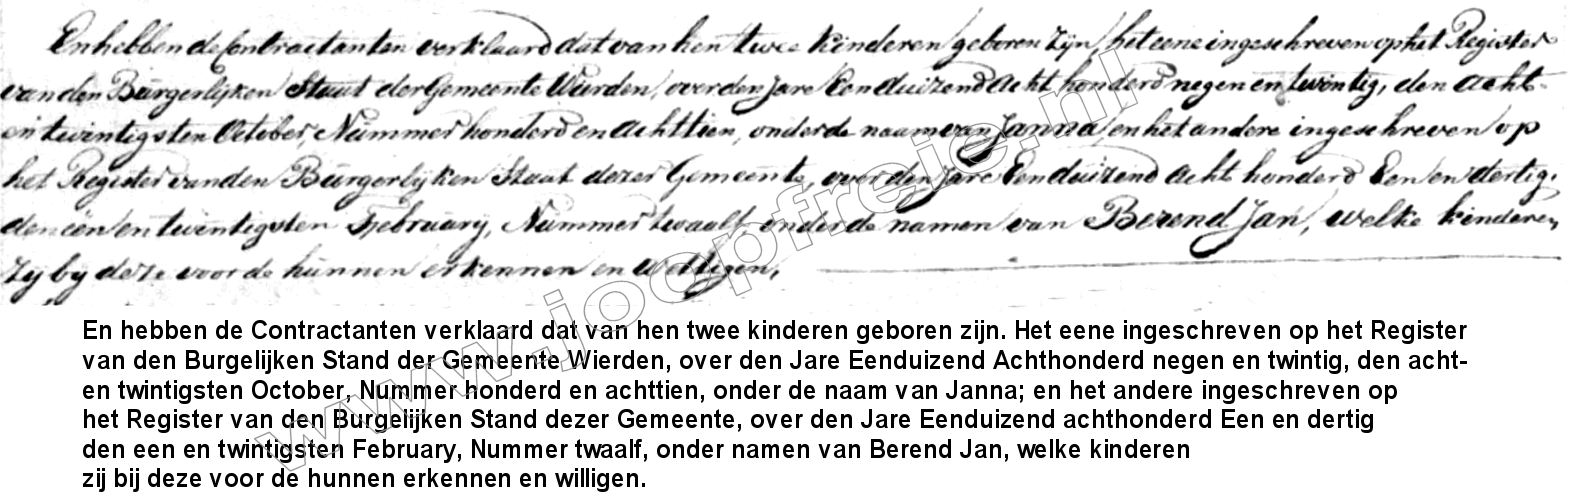 En hebben de Contractanten verklaard dat van hen twee kinderen geboren zijn, het eene ingeschreven op het Register
van den Burgerlijken Staat der Gemeente Wierden, over den Jare Eenduizend Acht honderd negen en twintig, den acht-
en twintigsten October, Nummer honderd en achttien, onder de naam van Janna, en het andere ingeschreven op
het Register van den Burgerlijken Staat dezer Gemeente, over den Jare Eenduizend acht honderd Een en dertig.
den een en twintigsten February, Nummer twaalf, onder de namen van Berend Jan, welke kinderen
zij bij deze voor de hunnen erkennen en wettigen.
www.joopfreije.nl
En hebben de Contractanten verklaard dat van hen twee kinderen geboren zijn. Het eene ingeschreven op het Register
van den Burgelijken Stand der Gemeente Wierden, over den Jare Eenduizend Achthonderd negen en twintig, den acht-
en twintigsten October, Nummer honderd en achttien, onder de naam van Janna; en het andere ingeschreven op
het Register van den Burgelijken Stand dezer Gemeente, over den Jare Eenduizend achthonderd Een en dertig
den een en twintigsten February, Nummer twaalf, onder namen van Berend Jan, welke kinderen
zij bij deze voor de hunnen erkennen en willigen.